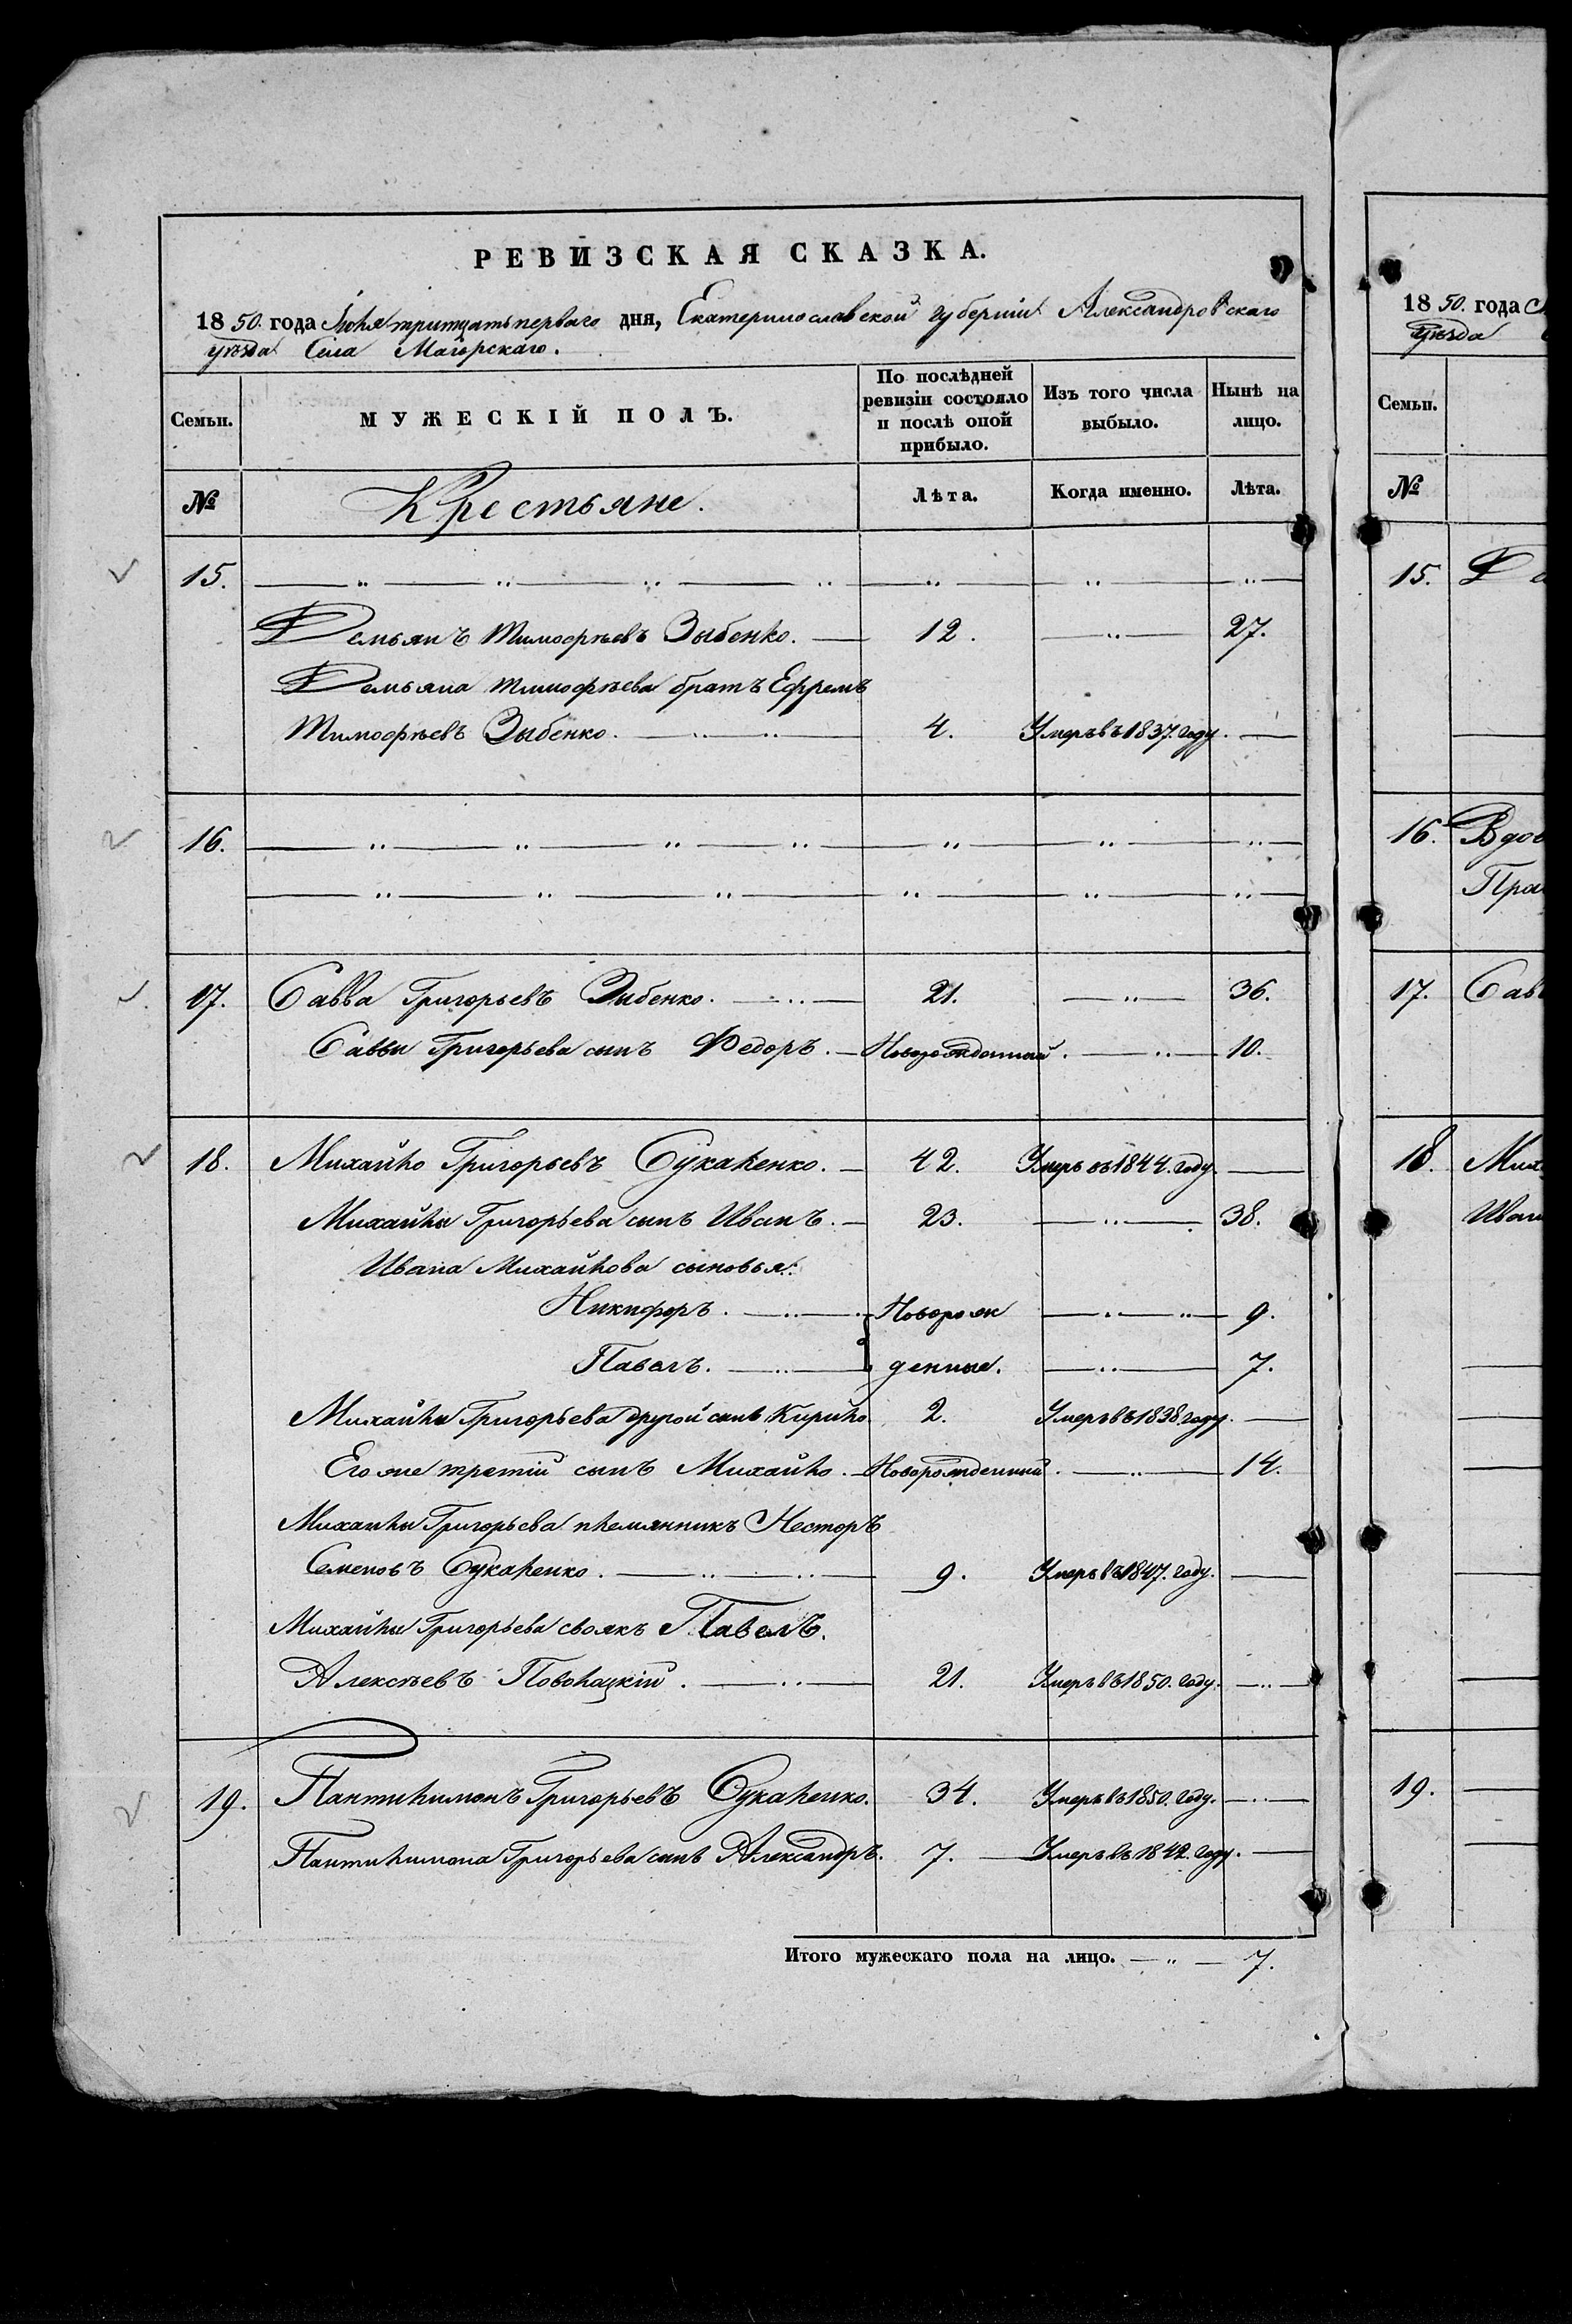 РЕВИЗСКАЯ СКАЗКА.
1850. года Іюля тритцать перваго дня, Екатеринославской губерніи Александровскаго
уѣзда Села Маіорскаго.
Семьи.
МУЖЕСКІЙ ПОЛЪ.
По послѣдней ревизіи состояло и послѣ оной прибыло.
Изъ того числа выбыло.
Нынѣ на лицо.
№
Крестьяне.
Лѣта.
Когда именно.
Лѣта.
15.
Демьянъ Тимофѣевъ Зыбенко. 12. 27.
Демьяна Тимофѣева братъ Ефремъ
Тимофѣевъ Зыбенко. 4. Умеръ въ 1837. году.
16.
17. Савва Григорьевъ Зыбенко. 21. 36.
Саввы Григорьева сынъ Федоръ. Новорожденный. 10.
18. Михайло Григорьевъ Сукаленко. 42. Умеръ въ 1844. году.
Михайлы Григорьева сынъ Иванъ. 23. 38.
Ивана Михайлова сыновья:
Никифоръ. Новорож 9.
Павелъ. денные. 7.
Михайлы Григорьева другой сынъ Кирило. 2. Умеръ въ 1838. году.
Его же третій сынъ Михайло. Новорожденный. 14.
Михайлы Григорьева племянникъ Несторъ
Семеновъ Сукаленко. 9. Умеръ въ 1847. году.
Михайлы Григорьева своякъ Павелъ.
Алексѣевъ Поволоцкій. 21. Умеръ въ 1850. году.
19. Пантилимонъ Григорьевъ Сукаленко. 34. Умеръ въ 1850. году.
Пантилимона Григорьева сынъ Александръ. 7. Умеръ въ 1842. году.
Итого мужескаго пола на лицо. 7.
1850. года
уѣзда
Семьи.
№
15.
16.
17.
18.
19.